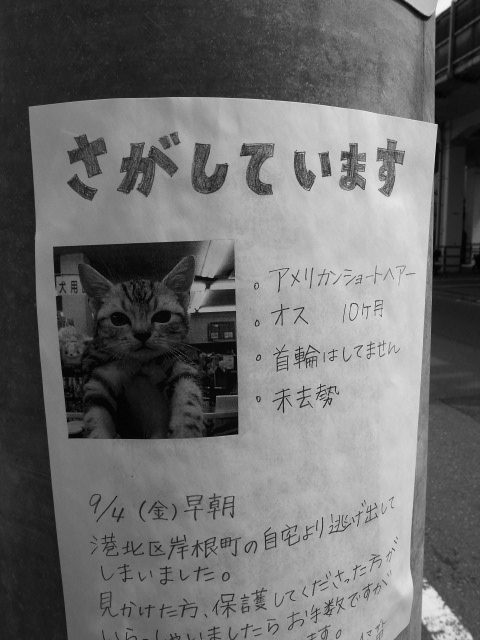 さがしています
犬用
。アメリカンショートヘアー
。オス 10ヶ月
。首輪はしてません
。未去勢
9/4 (金)早朝
港北区岸根町の自宅より逃げ出して
しまいました。
見かけた方、保護してくださった方が
いらっしゃいましたらお手数ですが
ます。